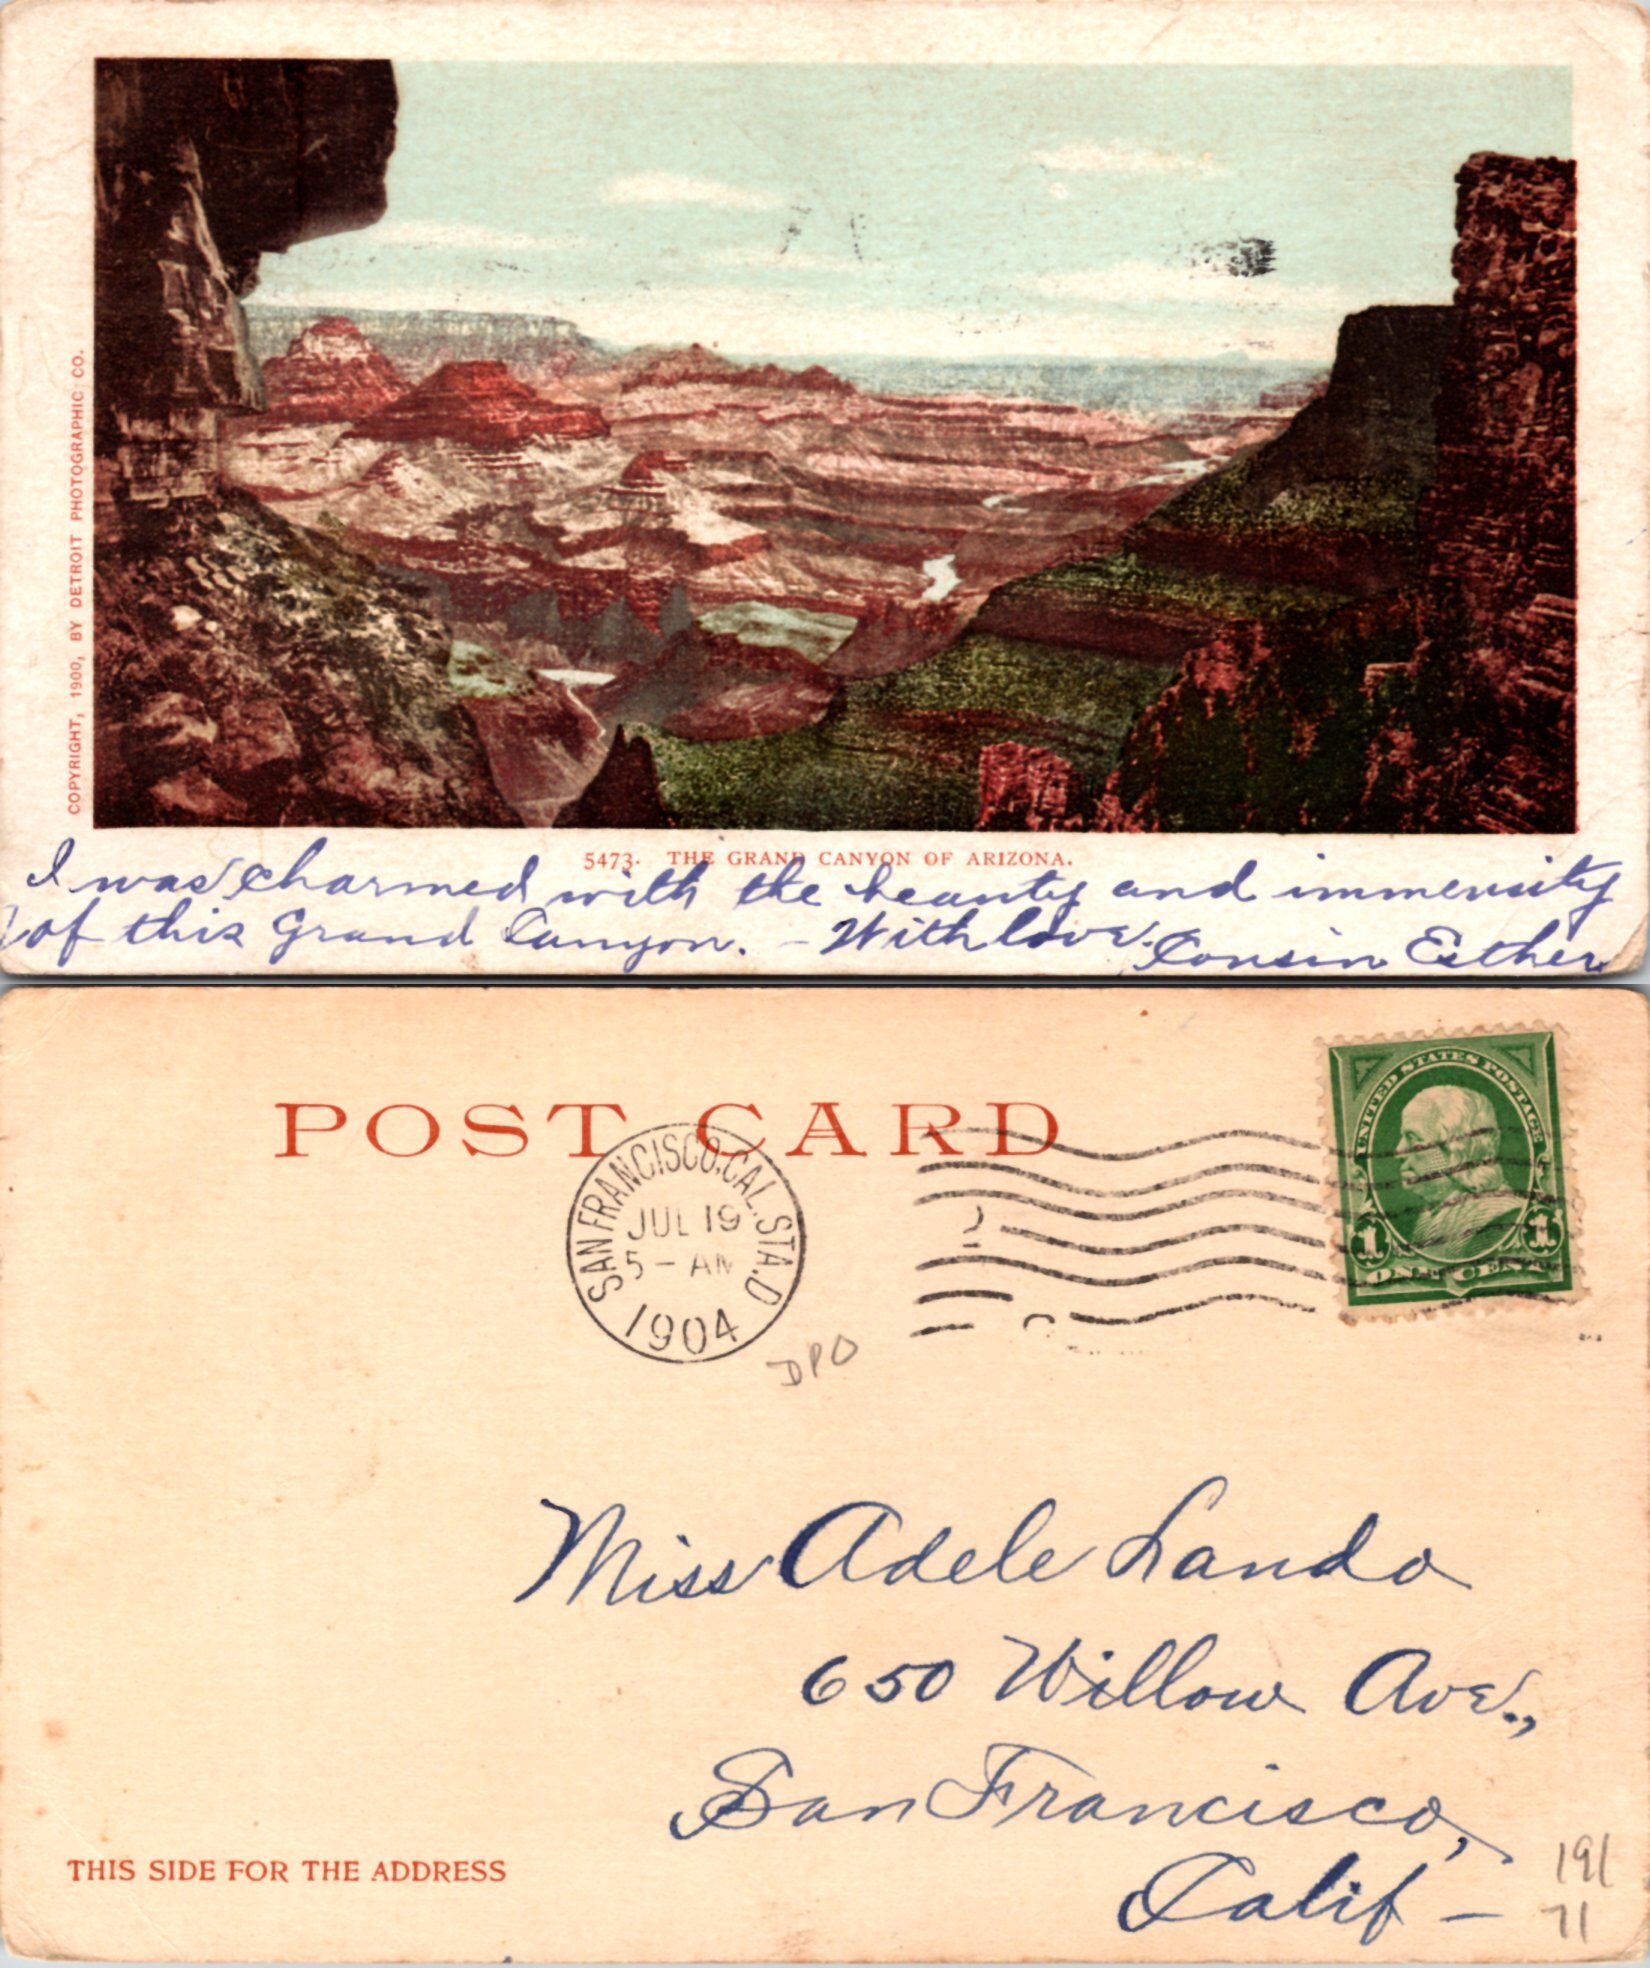 COPYRIGHT, 1900, BY DETROIT PHOTOGRAPHIC CO.
5473. THE GRAND CANYON OF ARIZONA.
I was charmed with the beauty and immensity
of this Grand Canyon. - With love. Cousin Esther
POST CARD
SAN FRANCISCO, CAL. STA. D
JUL 19
5 - AM
1904
UNITED STATES POSTAGE
1 1
ONE CENT
DPO
Miss Adele Lando
650 Willow Ave.,
San Francisco,
Calif -
THIS SIDE FOR THE ADDRESS
191
71